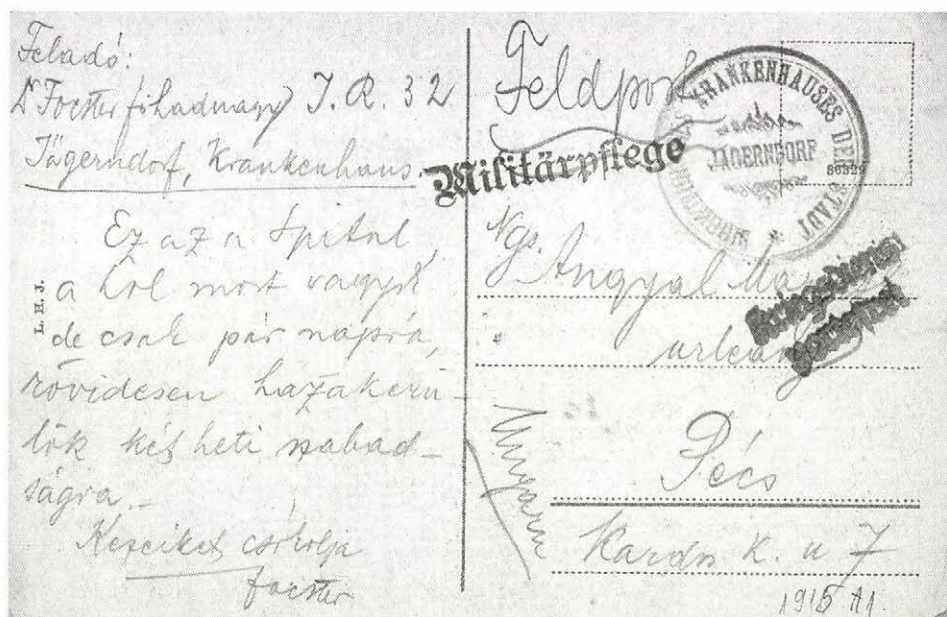 Feladó:
Dr Forster főhadnagy J. R. 32
Jägerndorf, Krankenhaus.
Ez az a Spital,
a hol most vagyok
de csak pár napra,
rövidesen hazakerü-
lök két heti szabad-
ságra. –
Kezeiket csókolja
Forster
L. H. J.
Feldpost
Militärpflege
KRANKENHAUSES DER STADT
JÄGERNDORF
86329
Ngs. Angyal
urleány
Ungarn
Pécs
k. u 7
1915